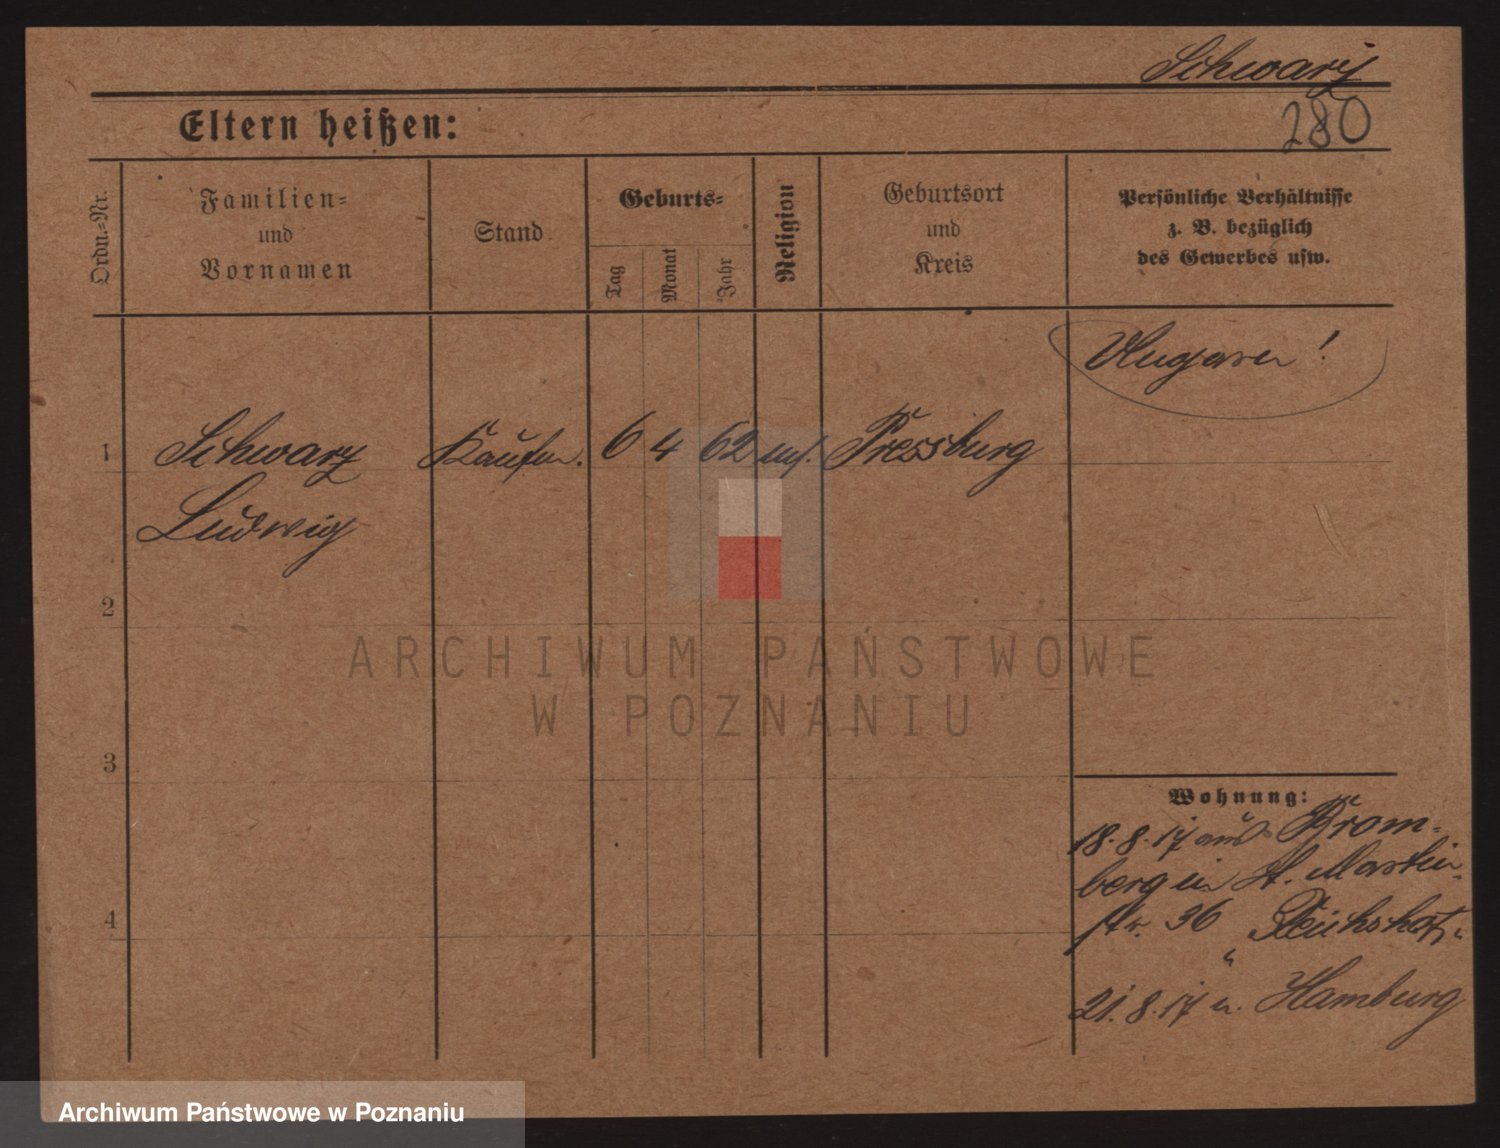 Schwarz
280
Eltern heißen:
Ordn.-Nr.
Familien-
und
Vornamen
Stand
Geburts-
Tag
Monat
Jahr
Religion
Geburtsort
und
Kreis
Persönliche Verhältnisse
z. B. bezüglich
des Gewerbes usw.
Ungarn!
1 Schwarz Kaufm. 6 4 62 Pressburg
Ludwig
2
3
4
Wohnung:
18.8.17 aus Brom-
berg in St. Martin-
str. 36 "Reichshof"
21.8.17 n. Hamburg
ARCHIWUM PAŃSTWOWE
W POZNANIU
Archiwum Państwowe w Poznaniu